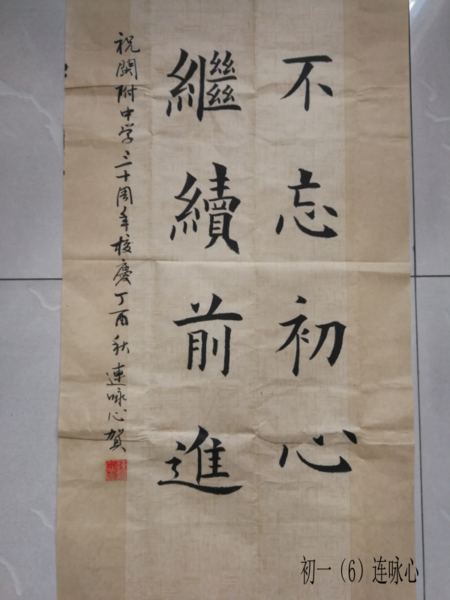 不忘初心
繼續前進
祝閩附中学三十周年校慶丁酉秋連咏心賀
初一（6）连咏心